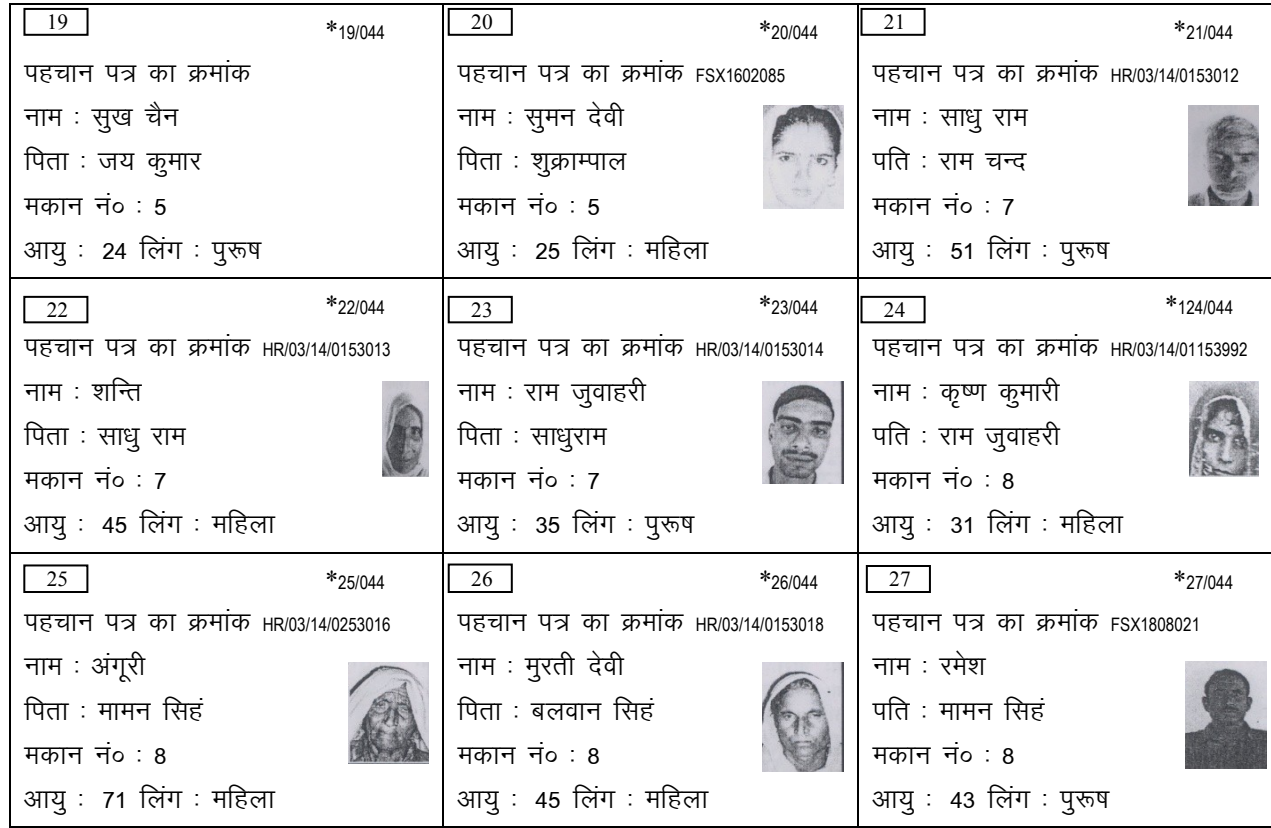 19 *19/044
पहचान पत्र का क्रमांक
नाम : सुख चैन
पिता : जय कुमार
मकान नं० : 5
आयु : 24 लिंग : पुरूष
20 *20/044
पहचान पत्र का क्रमांक FSX1602085
नाम : सुमन देवी
पिता : शुक्राम्पाल
मकान नं० : 5
आयु : 25 लिंग : महिला
21 *21/044
पहचान पत्र का क्रमांक HR/03/14/0153012
नाम : साधु राम
पति : राम चन्द
मकान नं० : 7
आयु : 51 लिंग : पुरूष
22 *22/044
पहचान पत्र का क्रमांक HR/03/14/0153013
नाम : शन्ति
पिता : साधु राम
मकान नं० : 7
आयु : 45 लिंग : महिला
23 *23/044
पहचान पत्र का क्रमांक HR/03/14/0153014
नाम : राम जुवाहरी
पिता : साधुराम
मकान नं० : 7
आयु : 35 लिंग : पुरूष
24 *124/044
पहचान पत्र का क्रमांक HR/03/14/01153992
नाम : कृष्ण कुमारी
पति : राम जुवाहरी
मकान नं० : 8
आयु : 31 लिंग : महिला
25 *25/044
पहचान पत्र का क्रमांक HR/03/14/0253016
नाम : अंगूरी
पिता : मामन सिहं
मकान नं० : 8
आयु : 71 लिंग : महिला
26 *26/044
पहचान पत्र का क्रमांक HR/03/14/0153018
नाम : मुरती देवी
पिता : बलवान सिहं
मकान नं० : 8
आयु : 45 लिंग : महिला
27 *27/044
पहचान पत्र का क्रमांक FSX1808021
नाम : रमेश
पति : मामन सिहं
मकान नं० : 8
आयु : 43 लिंग : पुरूष